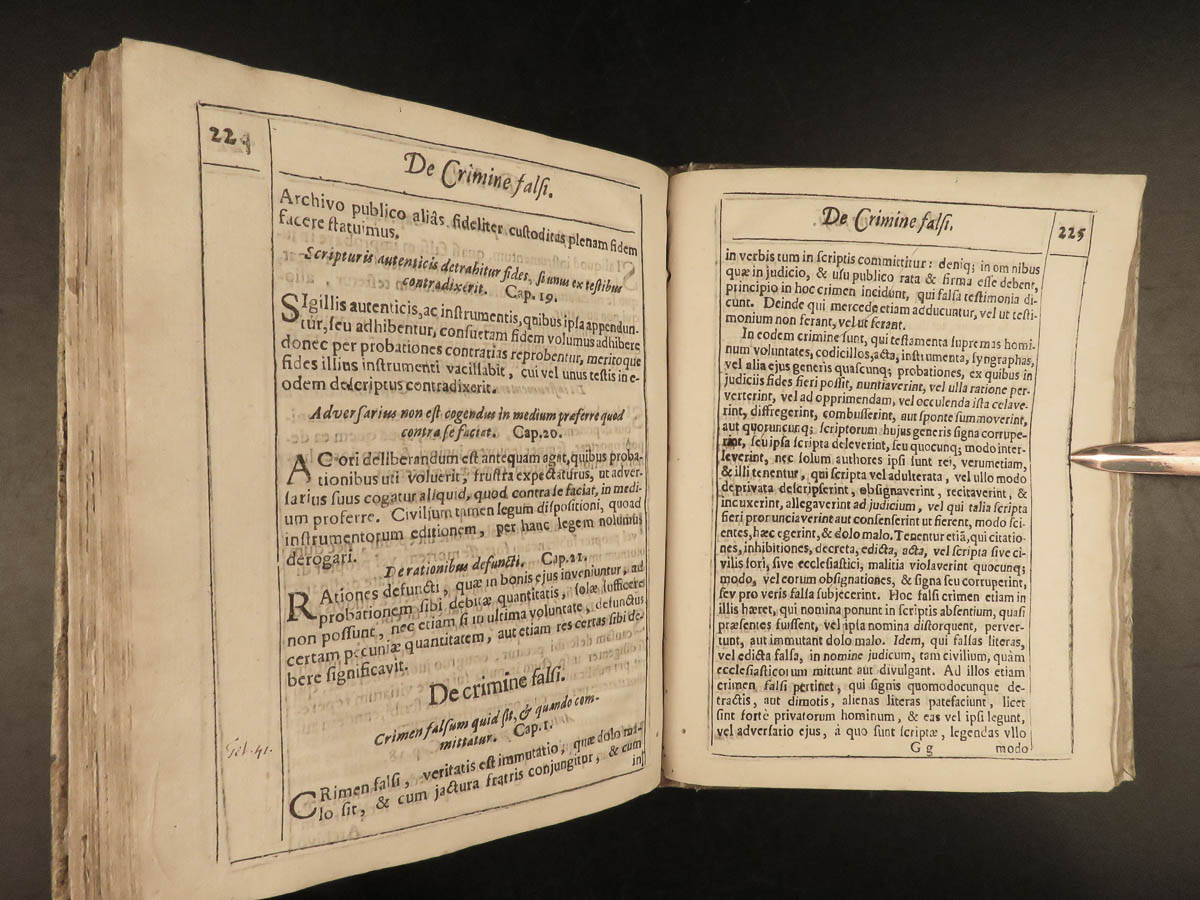 224
De Crimine falſi.
Archivo publico aliâs fideliter cuſtoditas plenam fidem
facere ſtatuimus.
Scripturis autenticis detrahitur fides, ſi unus ex teſtibus
contradixerit. Cap. 19.
SIgillis autenticis, ac inſtrumentis, quibus ipſa appendun-
tur, ſeu adhibentur, conſuetam fidem volumus adhibere
donec per probationes contrarias reprobentur, meritoque
fides illius inſtrumenti vacillabit, cui vel unus teſtis in e-
odem deſcriptus contradixerit.
Adverſarius non eſt cogendus in medium præferre quod
contra ſe faciat. Cap. 20.
ACtori deliberandum eſt antequam agat, quibus proba-
tionibus uti voluerit, fruſtra expectaturus, ut adver-
ſarius ſuus cogatur aliquid, quod contra ſe faciat, in medi-
um proferre. Civilium tamen legum diſpoſitioni, quoad
inſtrumentorum editionem, per hanc legem nolumus
derogari.
De rationibus defuncti. Cap. 21.
RAtiones defuncti, quæ in bonis ejus inveniuntur, ad
probationem ſibi debitæ quantitatis, ſolæ ſufficere
non poſſunt, nec etiam ſi in ultima voluntate, defunctus
certam pecuniæ quantitatem, aut etiam res certas ſibi de-
bere ſignificavit.
De crimine falſi.
Crimen falſum quid ſit, & quando com-
mittatur. Cap. 1.
CRimen falſi, veritatis eſt immutatio, quæ dolo ma-
lo ſit, & cum jactura fratris conjungitur, & cum
in
225
De Crimine falſi.
in verbis tum in ſcriptis committitur: deniq; in omnibus
quæ in judicio, & uſu publico rata & firma eſſe debent,
principio in hoc crimen incidunt, qui falſa teſtimonia di-
cunt. Deinde qui mercede etiam adducuntur, vel ut teſti-
monium non ferant, vel ut ferant.
In eodem crimine ſunt, qui teſtamenta ſupremas homi-
num voluntates, codicillos, acta, inſtrumenta, ſyngraphas,
vel alia ejus generis quaſcunq; probationes, ex quibus in
judiciis fides fieri poſſit, nuntiaverint, vel ulla ratione per-
verterint, vel ad opprimendam, vel occulenda iſta celave-
rint, diffregerint, combuſſerint, aut ſponte ſummoverint,
aut quoruncunq; ſcriptorum hujus generis ſigna corrupe-
rint, ſeu ipſa ſcripta deleverint, ſeu quocunq; modo inter-
leverint, nec ſolum authores ipſi ſunt rei, verumetiam,
& illi tenentur, qui ſcripta vel adulterata, vel ullo modo
depravata deſcripſerint, obſignaverint, recitaverint, &
incuxerint, allegaverint ad judicium, vel qui talia ſcripta
fieri pronunciaverint aut conſenſerint ut fierent, modo ſci-
entes, hæc egerint, & dolo malo. Tenentur etiã, qui citatio-
nes, inhibitiones, decreta, edicta, acta, vel ſcripta ſive ci-
vilis fori, ſive eccleſiaſtici, malitia violaverint quocunq;
modo, vel eorum obſignationes, & ſigna ſeu corruperint,
ſev pro veris falſa ſubjecerint. Hoc falſi crimen etiam in
illis hæret, qui nomina ponunt in ſcriptis abſentium, quaſi
præſentes fuiſſent, vel ipſa nomina diſtorquent, perver-
tunt, aut immutant dolo malo. Idem, qui falſas literas,
vel edicta falſa, in nomine judicum, tam civilium, quàm
eccleſiaſticorum mittunt aut divulgant. Ad illos etiam
crimen falſi pertinet, qui ſignis quomodocunque de-
tractis, aut dimotis, alienas literas patefaciunt, licet
ſint fortè privatorum hominum, & eas vel ipſi legunt,
vel adverſario ejus, à quo ſunt ſcriptæ, legendas vllo
G g modo